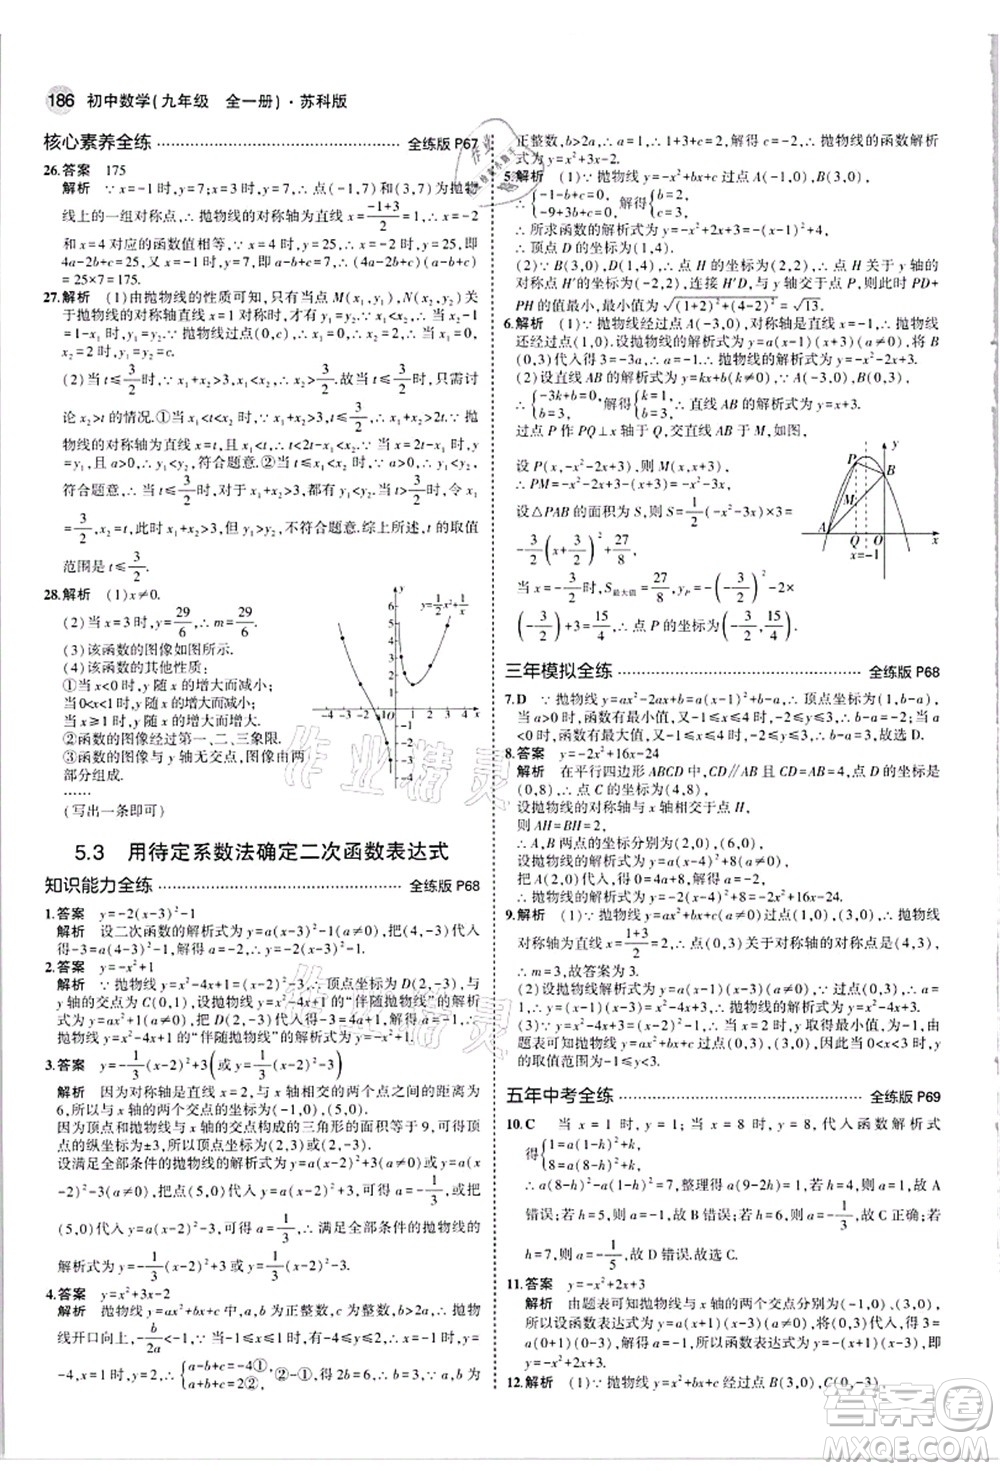 186 初中数学(九年级 全一册)·苏科版
核心素养全练 全练版 P67
26.答案 175
解析 ∵x=-1时,y=7;x=3时,y=7,∴点(-1,7)与点(3,7)是抛物
线上的一组对称点,∴抛物线的对称轴为直线x=\frac{-1+3}{2}=1,∴x=-2
和x=4对应的函数值相等,∵x=-2时,y=25,∴x=4时,y=25,即
4a-2b+c=25,16a+4b+c=25,∴(4a-2b+c)(a-b+c)(16a+4b+c)
=25×7×25=175.
27.解析 (1)由抛物线的性质可知,当抛物线上点M(x₁,y₁),N(x₂,y₂)关
于抛物线的对称轴直线x=1对称时,才有y₁=y₂,∴当x₂-1
=1-x₁时,y₁=y₂.
(2)当x₁+x₂>3时,\frac{x₁+x₂}{2}>\frac{3}{2}.故当t≤\frac{3}{2}时,只需讨
论x₂>t的情况.①当x₁<t<x₂时,∵x₁+x₂>3,t≤\frac{3}{2},且抛
物线的对称轴为直线x=t,且x₁<t,∴x₂-t>t-x₁,∵a>0,∴y₁<y₂,
符合题意.②当t≤x₁<x₂时,∵x₁+x₂>3,且a>0,∴y₁<y₂,
符合题意,∴当t≤\frac{3}{2}时,符合题意.当t>\frac{3}{2}时,令x₁
=\frac{3}{2},x₂=t,此时x₁+x₂>3,但y₁>y₂,不符合题意.综上所述,t的取值
范围是t≤\frac{3}{2}.
28.解析 (1)x≠0.
(2)当x=3时,y=\frac{29}{6},∴m=\frac{29}{6}.
(3)该函数的图像如图所示.
(4)该函数的其他性质:
①当x<0时,y随x的增大而减小;
当0<x<1时,y随x的增大而减小;
当x≥1时,y随x的增大而增大.
②函数的图像经过第一、二、三象限.
③函数的图像与y轴无交点,图像由两
部分组成.
……
(写出一条即可)
5.3 用待定系数法确定二次函数表达式
知识能力全练 全练版 P68
1.答案 y=-2(x-3)²-1
解析 设二次函数的解析式为y=a(x-3)²-1,把(4,-3)代入
得-3=a(4-3)²-1,解得a=-2,∴y=-2(x-3)²-1.
2.答案 y=-x²+1
解析 ∵抛物线y=x²-4x+1=(x-2)²-3,∴顶点坐标为D(2,-3),与
y轴的交点为C(0,1),设抛物线y=x²-4x+1的“伴随抛物线”的解析
式为y=ax²+1,把D(2,-3)代入得4a+1=-3,解得a=-1,∴
抛物线y=x²-4x+1的“伴随抛物线”的解析式为y=-x²+1.
3.答案 y=-\frac{1}{3}(x-2)²+3(或y=\frac{1}{3}(x-2)²-3)
解析 因为对称轴是直线x=2,抛物线与x轴的两个交点之间的距离为
6,所以抛物线与x轴的两个交点的坐标为(-1,0),(5,0),
因为顶点和抛物线与x轴的交点构成的三角形的面积为9,可得顶
点的纵坐标为±3,所以顶点坐标为(2,3)或(2,-3).
设满足全部条件的抛物线的解析式为y=a(x-2)²+3或y=a(x
-2)²-3,把点(5,0)代入y=a(x-2)²+3得a=-\frac{1}{3},或把
(5,0)代入y=a(x-2)²-3得a=\frac{1}{3},∴满足全部条件的抛物线的
解析式为y=-\frac{1}{3}(x-2)²+3或y=\frac{1}{3}(x-2)²-3.
4.答案 y=x²+3x-2
解析 抛物线y=ax²+bx+c中,a,b为正整数,∴抛物
线开口向上,-\frac{b}{2a}<0,∵当-1≤x≤1时,有-4≤y≤2,∴当x=-1时,y=
-4,当x=1时,y=2,∴{a-b+c=-4①,a+b+c=2②,②-①得2b=6,∴b=3,∵a为
正整数,b>2a,∴a=1,∴1+3+c=2,∴c=-2,∴抛物线的函数解析
式为y=x²+3x-2.
5.解析 (1)∵抛物线y=-x²+bx+c经过点A(-1,0),B(3,0),
∴{-1-b+c=0,-9+3b+c=0,解得{b=2,c=3.
∴所求函数的解析式为y=-x²+2x+3=-(x-1)²+4,
∴顶点D的坐标为(1,4).
(2)∵B(3,0),D(1,4),∴点H的坐标为(2,2),点H关于y轴的
对称点H'的坐标为(-2,2),连接H'D,与y轴交于点P,此时PD+
PH的值最小,最小值为\sqrt{(1+2)²+(4-2)²}=\sqrt{13}.
6.解析 (1)∵抛物线经过点A(-3,0),对称轴是直线x=-1,∴抛物线
还经过点(1,0).设抛物线的解析式为y=a(x-1)(x+3)(a≠0),把B
(0,3)代入得3=-3a,∴a=-1.∴抛物线的解析式为y=-x²-2x+3.
(2)设直线AB的解析式为y=kx+b(k≠0),把A(-3,0),B(0,3)代入,
得{-3k+b=0,b=3,解得{k=1,b=3.∴直线AB的解析式为y=x+3.
过点P作PQ⊥x轴于Q,交直线AB于M,如图,
设P(x,-x²-2x+3),则M(x,x+3),
∴PM=-x²-2x+3-(x+3)=-x²-3x,
设△PAB的面积为S,则S=\frac{1}{2}(-x²-3x)×3=
-\frac{3}{2}(x+\frac{3}{2})²+\frac{27}{8},
当x=-\frac{3}{2}时,S最大值=\frac{27}{8},y_P=-(-\frac{3}{2})²-2×
(-\frac{3}{2})+3=\frac{15}{4},∴点P的坐标为(-\frac{3}{2},\frac{15}{4}).
三年模拟全练 全练版 P68
7.D ∵抛物线y=ax²-2ax+b=a(x-1)²+b-a,∴顶点坐标为(1,b-a),
当a>0时,函数有最小值,又∵-1≤x≤4时,y≥0,∴b-a≥0;当a
<0时,函数有最大值,又∵-1≤x≤4时,y≥0,∴8a+b≥0,故选D.
8.答案 y=-2x²+16x-24
解析 在平行四边形ABCD中,CD∥AB且CD=AB=4,D的坐标为
(0,8),∴点C的坐标为(4,8).
设抛物线的对称轴与x轴相交于点H,
则AH=BH=2,
∴A,B两点的坐标分别为(2,0),(6,0),
设抛物线的解析式为y=a(x-2)(x-6),把C(4,8)代入,得a=-2,
∴抛物线的解析式为y=-2x²+16x-24.
9.解析 (1)∵抛物线y=ax²+bx+c(a≠0)过点(1,0),(3,0),∴抛物线
对称轴为直线x=\frac{1+3}{2}=2,∴点(0,3)关于对称轴的对称点是(4,3),
∴m=3,故此抛物线的对称轴为直线x=2.
(2)∵抛物线y=ax²+bx+c过点(1,0),(3,0),(0,3),∴抛物线的解析式为y=x²-4x+3.
(3)∵y=x²-4x+3=(x-2)²-1,∴当x=2时,y有最小值,为-1,∵
y的取值范围为-1≤y<3.
五年中考全练 全练版 P69
10.C 当x=1时,y=1;当x=8时,y=8,代入函数解析式
得{1=a(1-h)²+k,8=a(8-h)²+k,
∴a(8-h)²-a(1-h)²=7,整理得a(9-2h)=1,若h=4,则a=1,故A
错误;若h=5,则a=-1,故B错误;若h=6,则a=-\frac{1}{3},故C正确;若
h=7,则a=-\frac{1}{5},故D错误.故选C.
11.答案 y=-x²+2x+3
解析 由题表可知抛物线与x轴的两个交点为(-1,0),(3,0),
∴设函数表达式为y=a(x+1)(x-3)(a≠0),把点(0,3)代入得3=
a(0+1)(0-3),解得a=-1,∴函数表达式为y=-(x+1)(x-3),
即y=-x²+2x+3.
12.解析 (1)∵抛物线y=-x²+bx+c经过点B(3,0),C(0,3),
作业精灵
作业精灵
答案圈
MXQE.COM